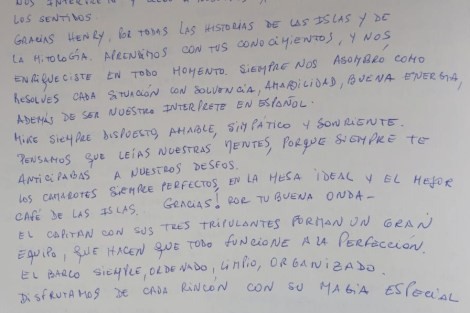 NOS INTERPRETÓ Y
LOS SENTIDOS.
GRACIAS HENRY, POR TODAS LAS HISTORIAS DE LAS ISLAS Y DE
LA MITOLOGÍA. APRENDIMOS CON TUS CONOCIMIENTOS, Y NOS
ENRIQUECISTE EN TODO MOMENTO. SIEMPRE NOS ASOMBRÓ COMO
RESOLVES CADA SITUACIÓN CON SOLVENCIA, AMABILIDAD, BUENA ENERGIA,
ADEMÁS DE SER NUESTRO INTERPRETE EN ESPAÑOL.
MIKE SIEMPRE DISPUESTO, AMABLE, SIMPÁTICO Y SONRIENTE.
PENSAMOS QUE LEIAS NUESTRAS MENTES, PORQUE SIEMPRE TE
ANTICIPABAS A NUESTROS DESEOS.
LOS CAMAROTES SIEMPRE PERFECTOS, EN LA MESA IDEAL Y EL MEJOR
CAFÉ DE LAS ISLAS. GRACIAS! POR TU BUENA ONDA-
EL CAPITAN CON SUS TRES TRIPULANTES FORMAN UN GRAN
EQUIPO, QUE HACEN QUE TODO FUNCIONE A LA PERFECCIÓN.
EL BARCO SIEMPRE, ORDENADO, LIMPIO, ORGANIZADO.
DISFRUTAMOS DE CADA RINCÓN CON SU MAGIA ESPECIAL